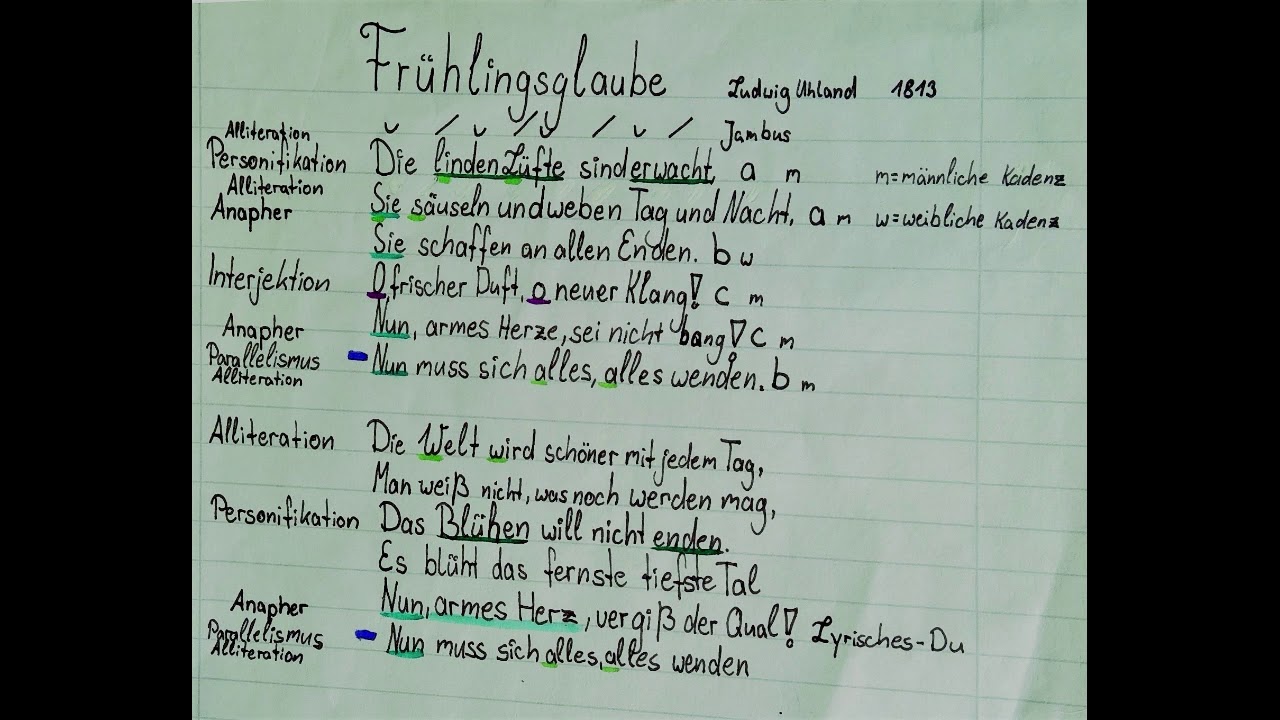 Frühlingsglaube Ludwig Uhland 1813
Alliteration ᴗ / ᴗ / ᴗ / ᴗ / Jambus
Personifikation Die linden Lüfte sind erwacht, a m m=männliche Kadenz
Alliteration
Anapher Sie säuseln und weben Tag und Nacht, a m w=weibliche Kadenz
Sie schaffen an allen Enden. b w
Interjektion O, frischer Duft, o neuer Klang! c m
Anapher Nun, armes Herze, sei nicht bang! c m
Parallelismus - Nun muss sich alles, alles wenden. b m
Alliteration
Alliteration Die Welt wird schöner mit jedem Tag,
Man weiß nicht, was noch werden mag,
Personifikation Das Blühen will nicht enden.
Es blüht das fernste tiefste Tal
Anapher Nun, armes Herz, vergiß der Qual! Lyrisches-Du
Parallelismus - Nun muss sich alles, alles wenden
Alliteration